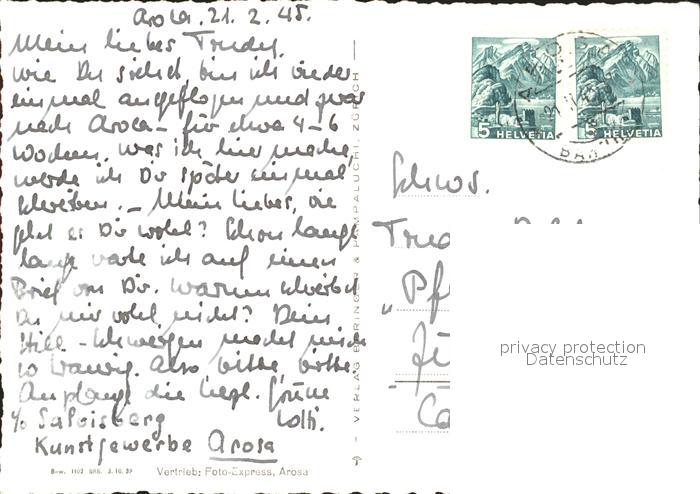 Arosa. 21. 2. 45.
Mein liebes Trudy.
wie Du siehst, bin ich wieder
einmal ausgeflogen und zwar
nach Arosa – für etwa 4-6
Wochen, was ich hier mache,
werde ich Dir später einmal
schreiben. – Mein liebes, wie
geht es Dir wohl? Schon lange
lange warte ich auf einen
Brief von Dir. Warum schreibst
Du mir wohl nicht? Dein
Still-Schweigen macht mich
so traurig. Also bitte, bitte.
Empfange die liebsten Grüsse
c/o Lotti.
Kunstgewerbe Arosa
Bew. 1102 BRB. 3.10.39
Vertrieb: Foto-Express, Arosa
- VERLAG BERINGER & PAMPALUCHI, ZÜRICH
5 HELVETIA
5 HELVETIA
Schws.
Trud
"Pf
privacy protection
Datenschutz